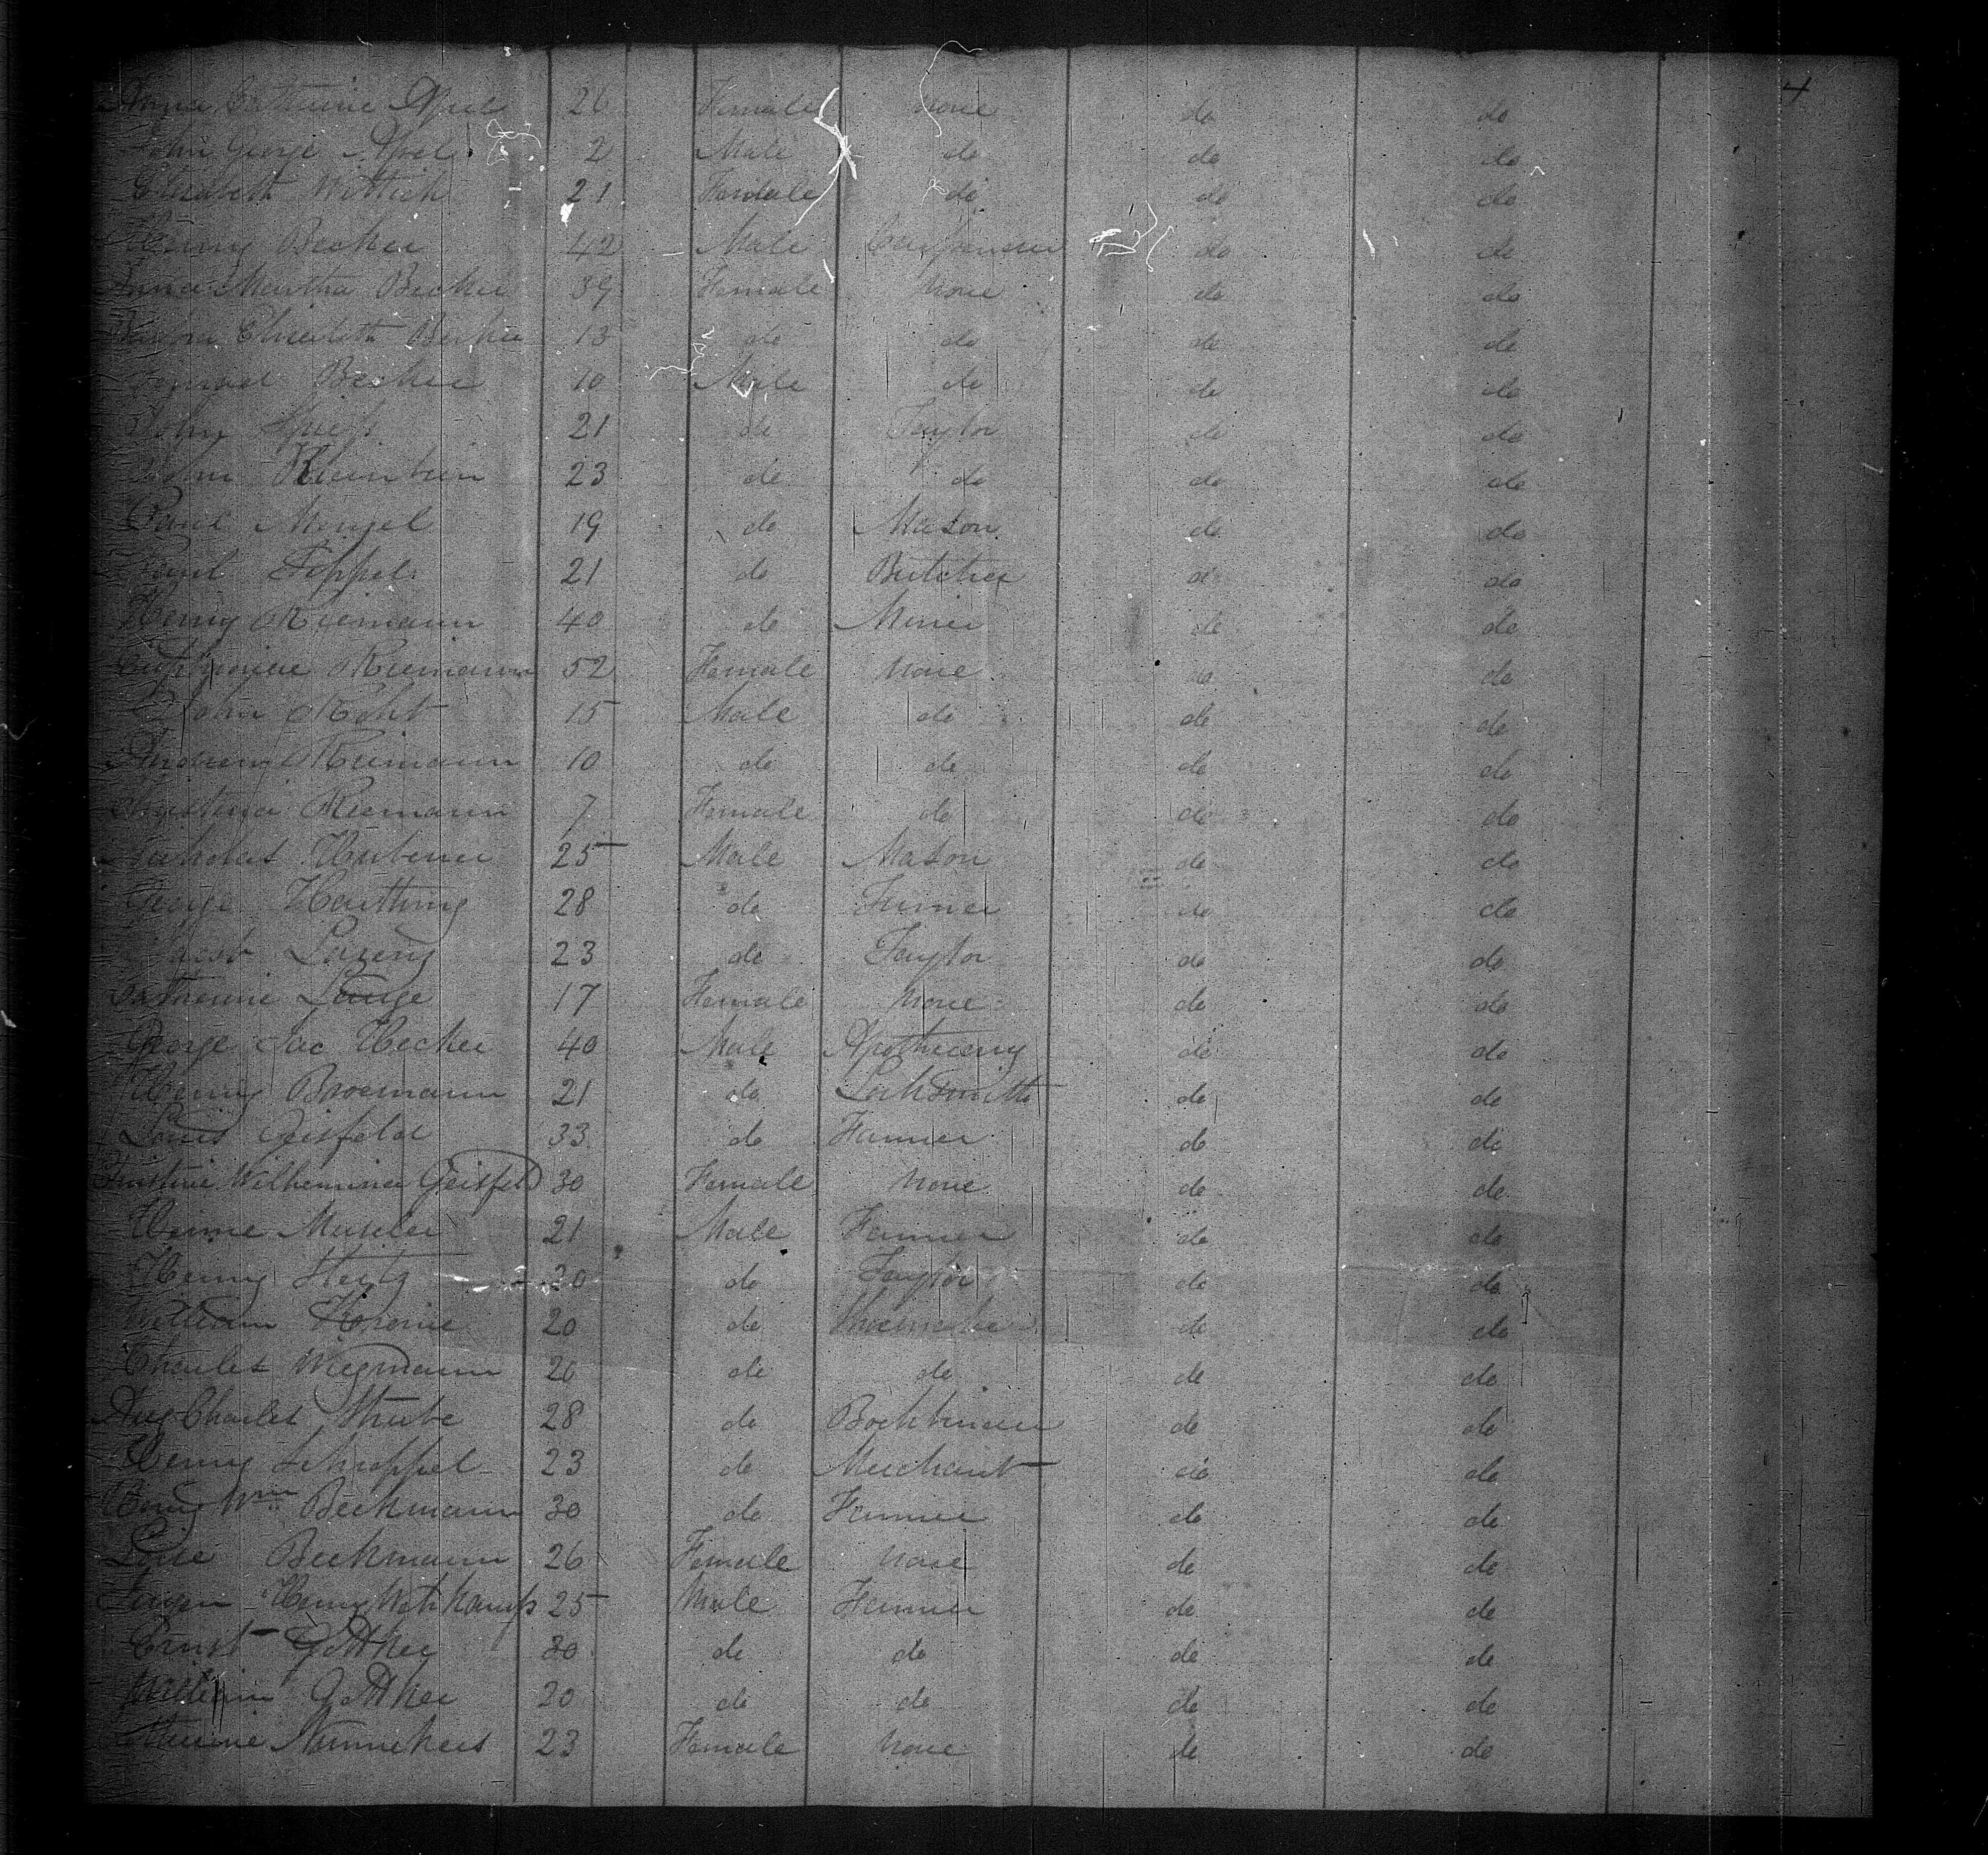 4
Anna Catherine Apel 26 Female None do do
John George Apel 2 Male do do do
Elisabeth Wittich 21 Female do do do
Henry Becker 42 Male Carpenter do do
Anna Martha Becker 39 Female None do do
Elisabeth Becker 13 do do do do
Conrad Becker 10 Male do do do
John 21 do Taylor do do
John 23 do do do do
Paul Mengel 19 do Mason do do
Paul Toppel 21 do Butcher do do
Henry Riemann 40 do Miner do do
Riemann 52 Female None do do
John Koht 15 Male do do do
Andreas Riemann 10 do do do do
Christina Riemann 7 Female do do do
Nicholas Hubener 25 Male Mason do do
George Harthung 28 do Turner do do
Jacob 23 do Taylor do do
Catherine Lange 17 Female None do do
George Jac Hecker 40 Male Apothecary do do
Henry Broemann 21 do Locksmith do do
Louis Geisfeld 33 do Farmer do do
Wilhemina Geisfeld 30 Female None do do
Museler 21 Male Farmer do do
Henry 20 do Taylor do do
William 20 do Shoemaker do do
Charles Wegmann 20 do do do do
Aug Charles Strube 28 do do do
Henry Schroppel 23 do Merchant do do
Henry Wm Beckmann 30 do Farmer do do
Beckmann 26 Female None do do
Henry 25 Male Farmer do do
Ernst Gottker 30 do do do do
William Gottker 20 do do do do
23 Female None do do